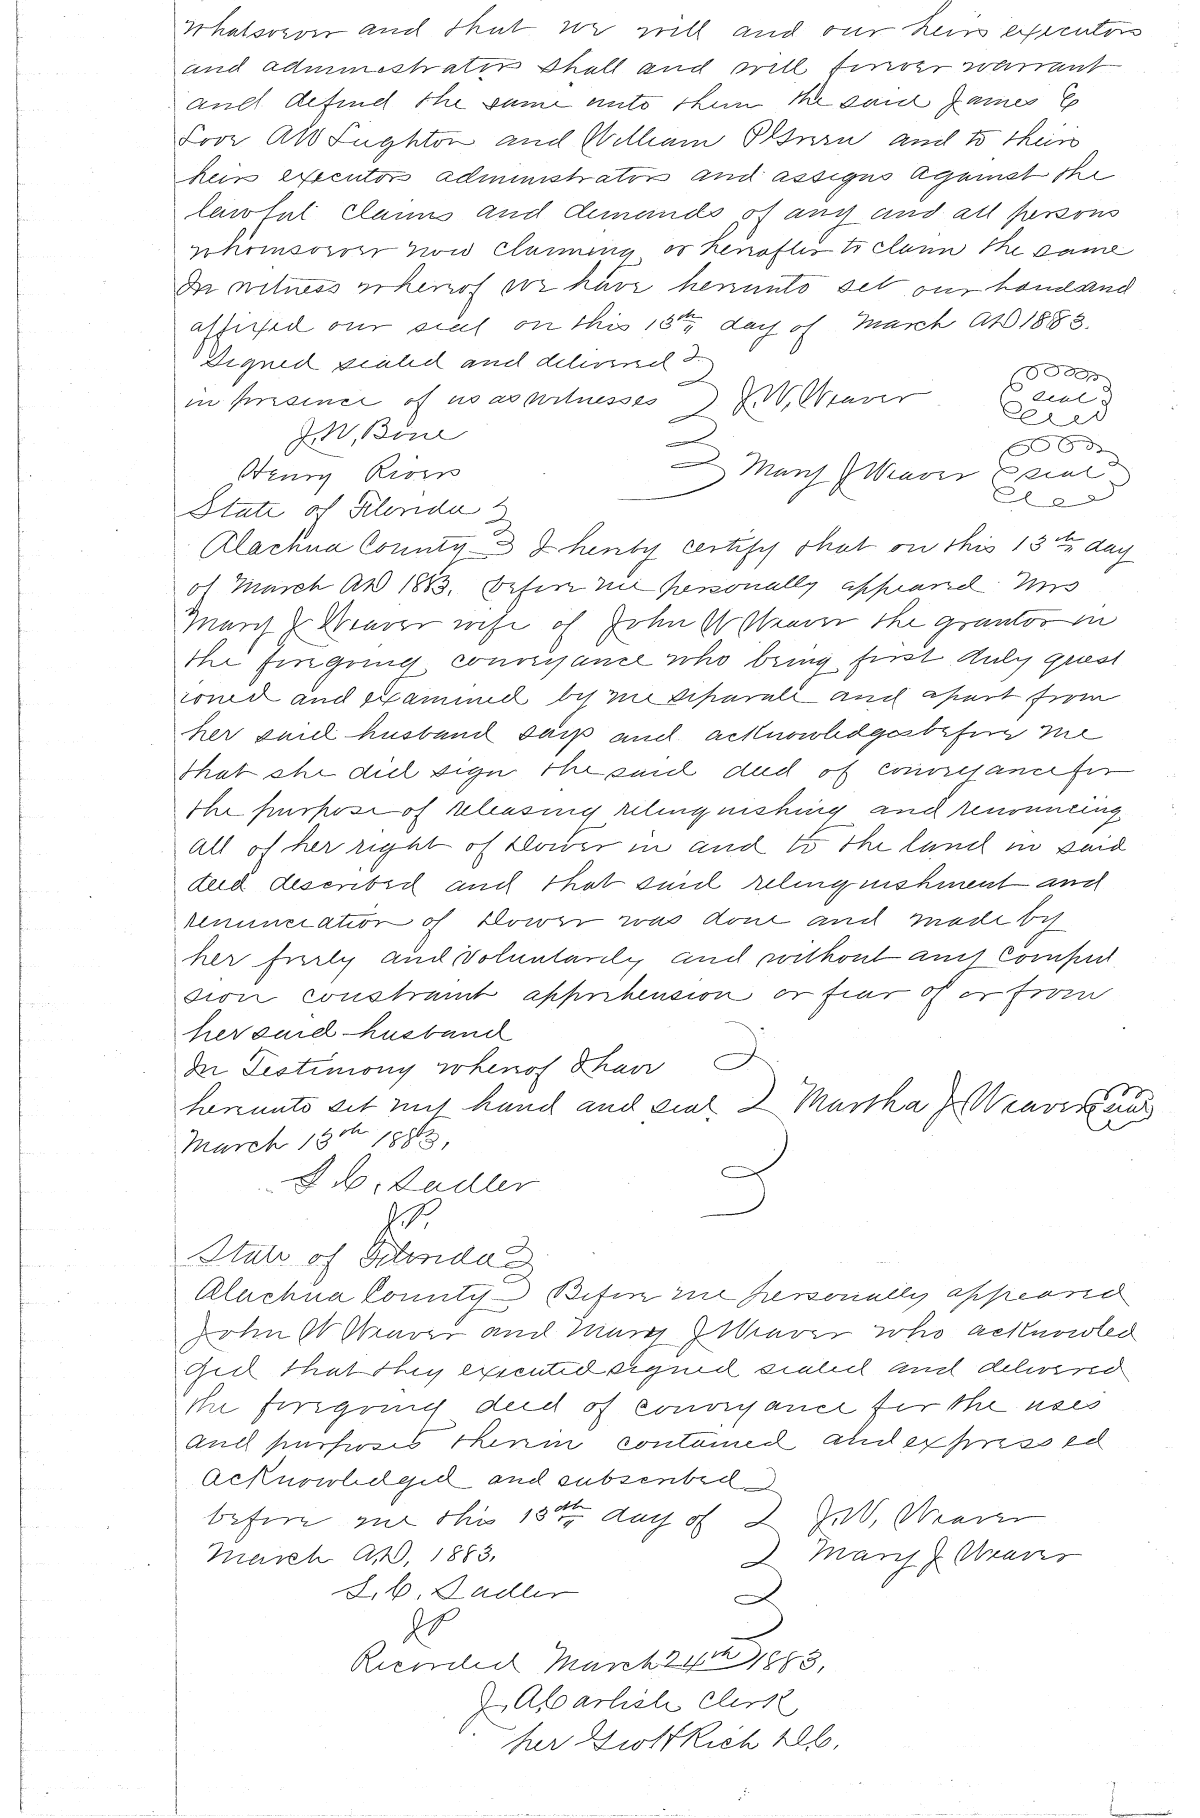 whatsoever and that we will and our heirs executors
and administrators shall and will forever warrant
and defend the same unto them the said James
AW Lughton and William and to their
heirs executors administrators and assigns against the
lawful claims and demands of any and all persons
whomsoever now claiming or hereafter to claim the same
In witness whereof we have hereunto set our hands and
affixed our seal on this 13th day of March AD 1883.
Signed sealed and delivered
in presence of us as witnesses J.W. Weaver seal
J.W. Bone
Henry Rivers Mary J Weaver seal
State of Florida
Alachua County I hereby certify that on this 13th day
of March AD 1883. before me personally appeared Mrs
Mary J Weaver wife of John W Weaver the grantor in
the foregoing conveyance who being first duly quest
ioned and examined by me separate and apart from
her said husband says and acknowledges before me
that she did sign the said deed of conveyance for
the purpose of releasing relinquishing and renouncing
all of her right of Dower in and to the land in said
deed described and that said relinquishment and
renunciation of Dower was done and made by
her freely and voluntarily and without any compul
sion constraint apprehension or fear of or from
her said husband
In Testimony whereof I have
hereunto set my hand and seal Martha J Weaver seal
March 13th 1883.
S. C. Sadler
J.P.
State of Florida
Alachua County Before me personally appeared
John W Weaver and Mary J Weaver who acknowled
ged that they executed signed sealed and delivered
the foregoing deed of conveyance for the uses
and purposes therein contained and expressed
Acknowledged and subscribed
before me this 13th day of J.W. Weaver
March A.D. 1883. Mary J Weaver
S. C. Sadler
JP
Recorded March 24th 1883.
J. A. Carlisle Clerk
per Rich D.C.